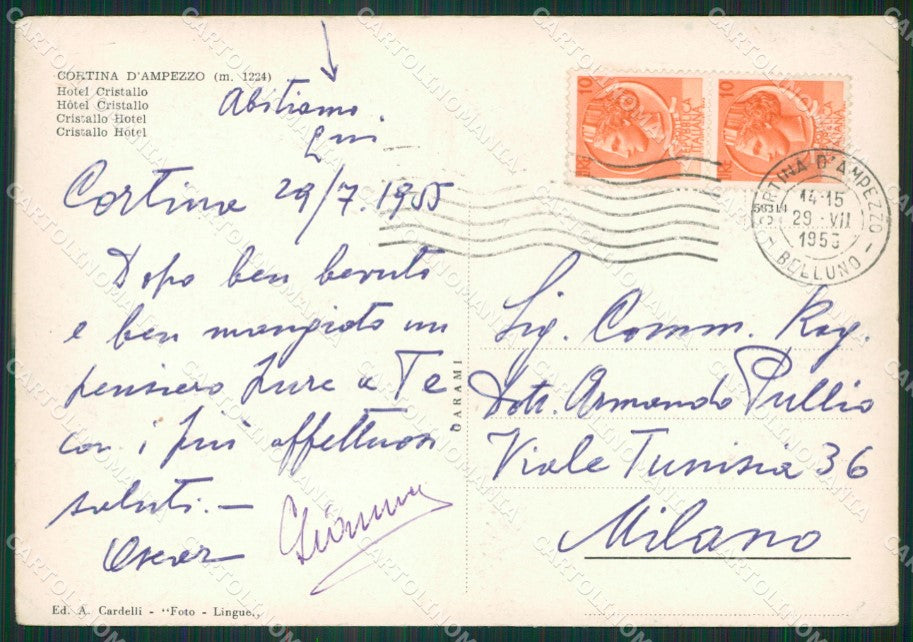 CORTINA D'AMPEZZO (m. 1224)
Hotel Cristallo
Hôtel Cristallo
Cristallo Hotel
Cristallo Hotel
Abitiamo
qui
Cortina 29/7.1955
Dopo ben bevuto
e ben mangiato un
pensiero pure a Te
con i più affettuosi
saluti.—
Oscar
Gianna
DARAMI
Ed. A. Cardelli - "Foto - Lingue„
10
LIRE
10
LIRE
CORTINA D'AMPEZZO
14-15
29 · VII
1955
- BELLUNO -
Sig. Comm. Rag.
Dott. Armando Pullio
Viale Tunisia 36
Milano
CARTOLINOMANIA